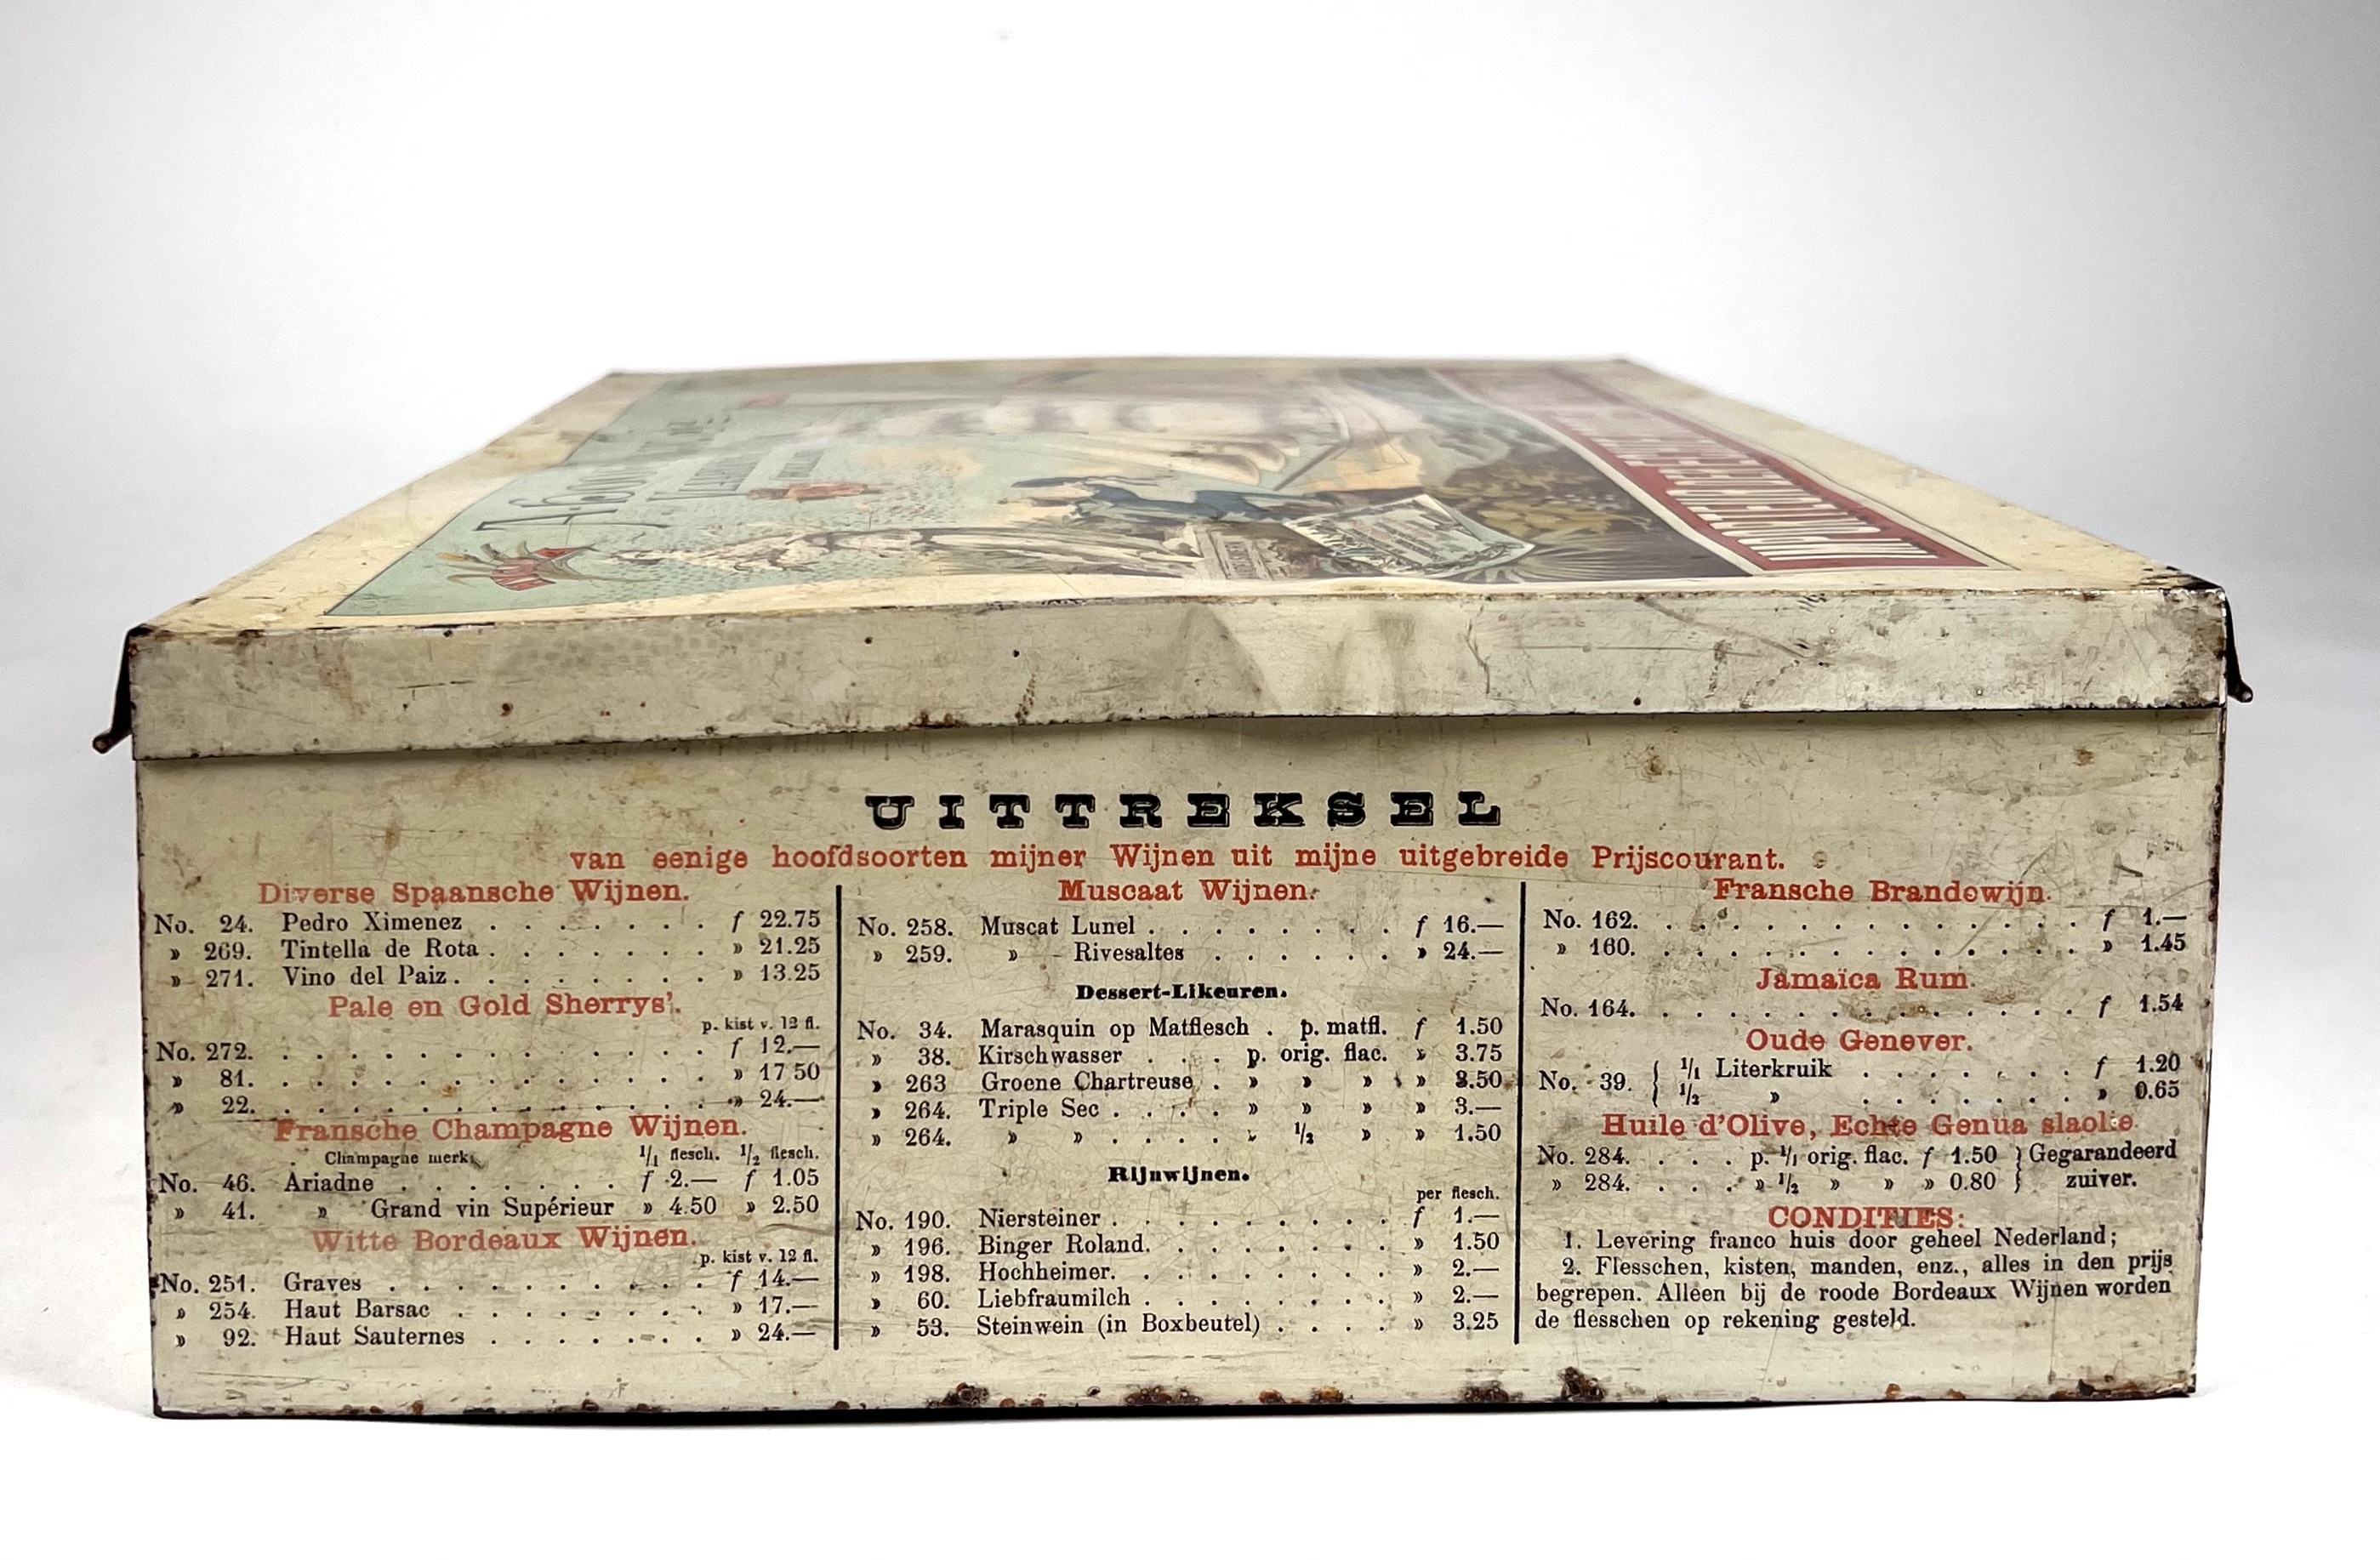 UITTREKSEL
van eenige hoofdsoorten mijner Wijnen uit mijne uitgebreide Prijscourant.
Diverse Spaansche Wijnen.
No. 24. Pedro Ximenez . . . . . . . f 22.75
» 269. Tintella de Rota . . . . . . » 21.25
» 271. Vino del Paiz . . . . . . . » 13.25
Pale en Gold Sherrys'.
p. kist v. 12 fl.
No. 272. . . . . . . . . . . . . f 12.—
» 81. . . . . . . . . . . . . . » 17 50
» 22. . . . . . . . . . . . . . » 24.—
Fransche Champagne Wijnen.
Champagne merk. 1/1 flesch. 1/2 flesch.
No. 46. Ariadne . . . . . . f 2.— f 1.05
» 41. » Grand vin Supérieur » 4.50 » 2.50
Witte Bordeaux Wijnen.
p. kist v. 12 fl.
No. 251. Graves . . . . . . . . . . f 14.—
» 254. Haut Barsac . . . . . . . . » 17.—
» 92. Haut Sauternes . . . . . . . » 24.—
Muscaat Wijnen.
No. 258. Muscat Lunel . . . . . . . . f 16.—
» 259. » Rivesaltes . . . . . . » 24.—
Dessert-Likeuren.
No. 34. Marasquin op Matflesch . p. matfl. f 1.50
» 38. Kirschwasser . . . p. orig. flac. » 3.75
» 263 Groene Chartreuse . » » » » 3.50
» 264. Triple Sec . . . . » » » » 3.—
» 264. » » . . . . » 1/2 » » 1.50
Rijnwijnen.
per flesch.
No. 190. Niersteiner . . . . . . . . . f 1.—
» 196. Binger Roland. . . . . . . . » 1.50
» 198. Hochheimer. . . . . . . . . » 2.—
» 60. Liebfraumilch . . . . . . . . » 2.—
» 53. Steinwein (in Boxbeutel) . . . . » 3.25
Fransche Brandewijn.
No. 162. . . . . . . . . . . . . . f 1.—
» 160. . . . . . . . . . . . . . » 1.45
Jamaïca Rum.
No. 164. . . . . . . . . . . . . f 1.54
Oude Genever.
No. 39. { 1/1 Literkruik . . . . . . . f 1.20
1/2 » . . . . . . . » 0.65
Huile d'Olive, Echte Genua slaolie.
No. 284. . . . p. 1/1 orig. flac. f 1.50 } Gegarandeerd
» 284. . . . » 1/2 » » » 0.80 } zuiver.
CONDITIES:
1. Levering franco huis door geheel Nederland;
2. Flesschen, kisten, manden, enz., alles in den prijs
begrepen. Alléen bij de roode Bordeaux Wijnen worden
de flesschen op rekening gesteld.